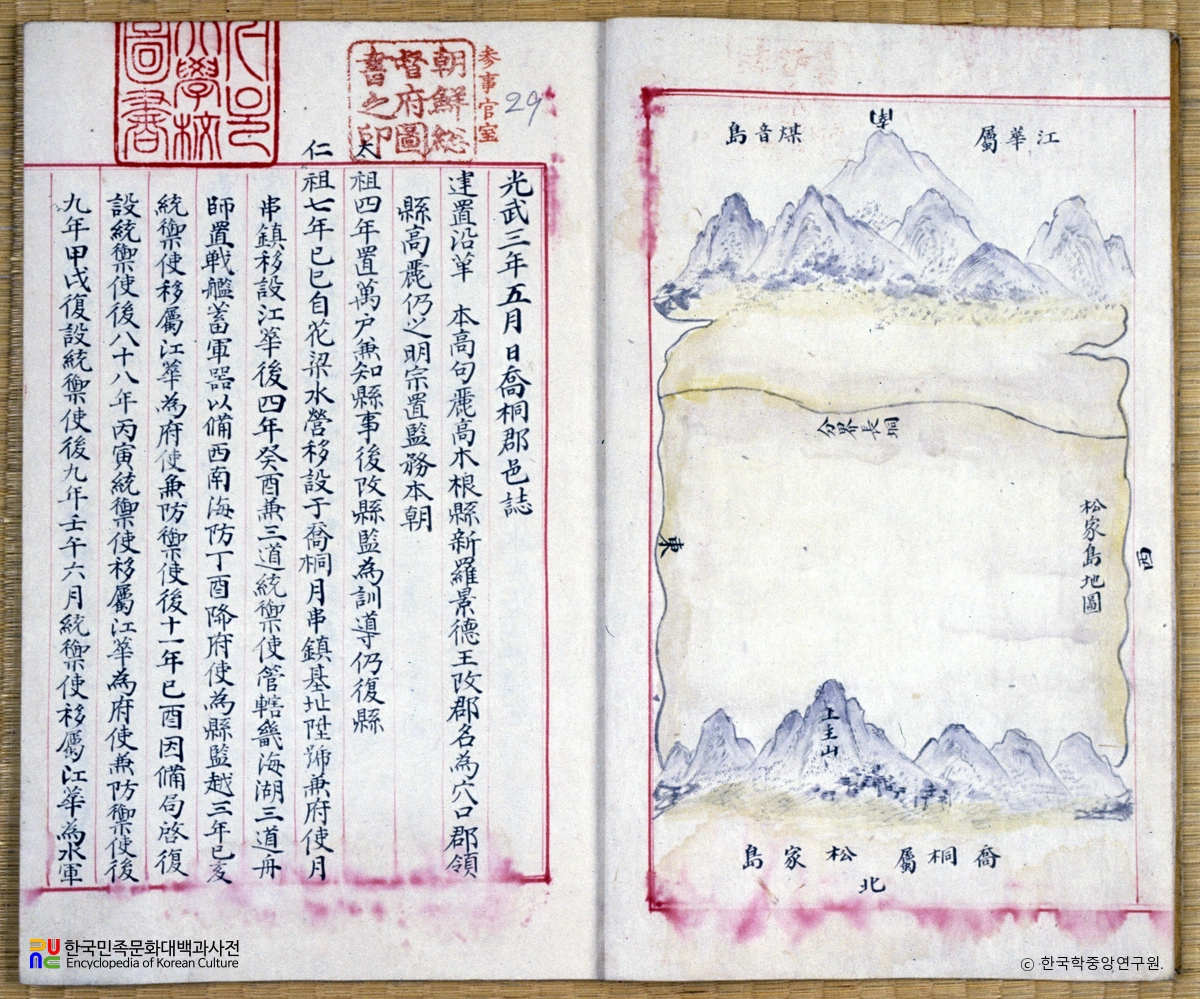 光武三年五月 日喬桐郡邑誌
建置沿革 本高句麗高木根縣新羅景德王改郡名為穴口郡領
縣高麗仍之明宗置監務本朝
太祖四年置萬戶兼知縣事後改縣監為訓導仍復縣
仁祖七年己巳自花梁水營移設于喬桐月串鎮基址陞號兼府使月
串鎮移設江華後四年癸酉兼三道統禦使管轄畿海湖三道舟
師置戰艦蓄軍器以備西南海防丁酉降府使為縣監越三年己亥
統禦使移屬江華為府使兼防禦使後十一年己酉因備局啓復
設統禦使後八十八年丙寅統禦使移屬江華為府使兼防禦使後
九年甲戌復設統禦使後九年壬午六月統禦使移屬江華為水軍
朝鮮総
督府圖
書之印
参事官室
29
大學校
圖書
江華屬
煤音島
南
分界長垌
松家島地圖
東
西
土主山
喬桐屬
松家島
北
한국민족문화대백과사전
Encyclopedia of Korean Culture
ⓒ 한국학중앙연구원.